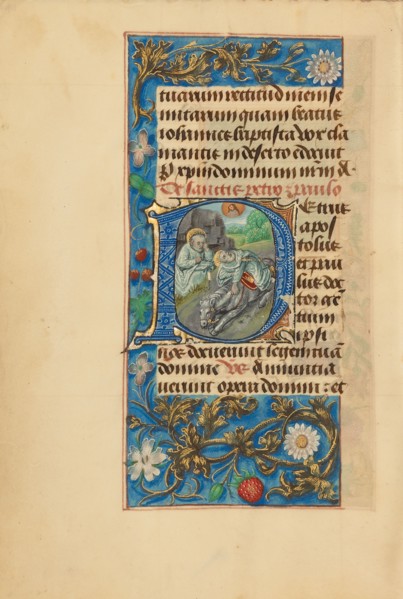 tuarum rectitudinem se
mitarum quam beatus
iohannes baptista vox cla
mantis in deserto edocuit
P xpm dominum nrm A
De sanctis petro z paulo
Petrus
apos
tolus
et pau
lus doc
tor gē
tium
ipsi
nos docuerunt legem tuā
domine Vs Annuntia
uerunt opera domini et